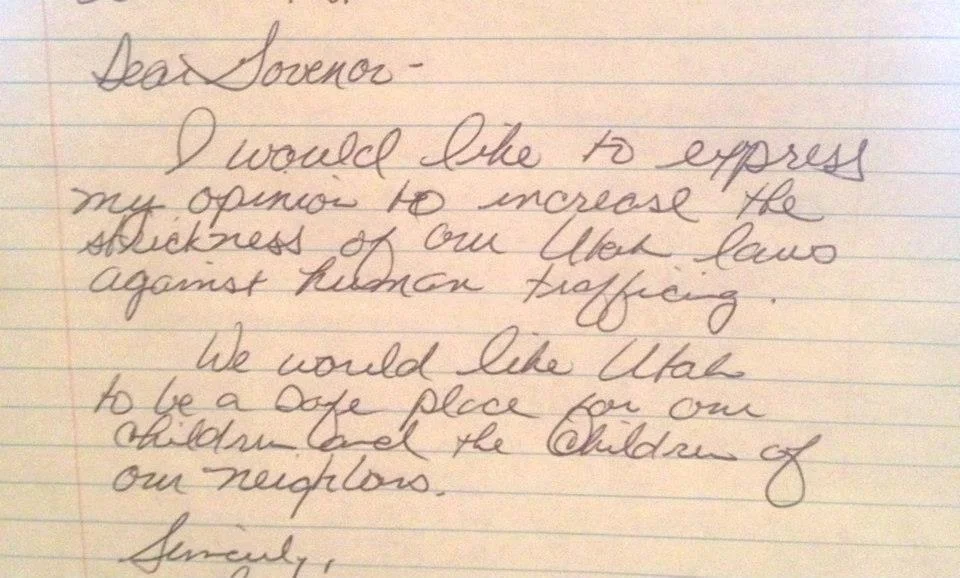 Dear Govenor -
I would like to express
my opinion to increase the
strickness of our Utah laws
against human trafficing.
We would like Utah
to be a safe place for our
children and the children of
our neighbors.
Sincerly,